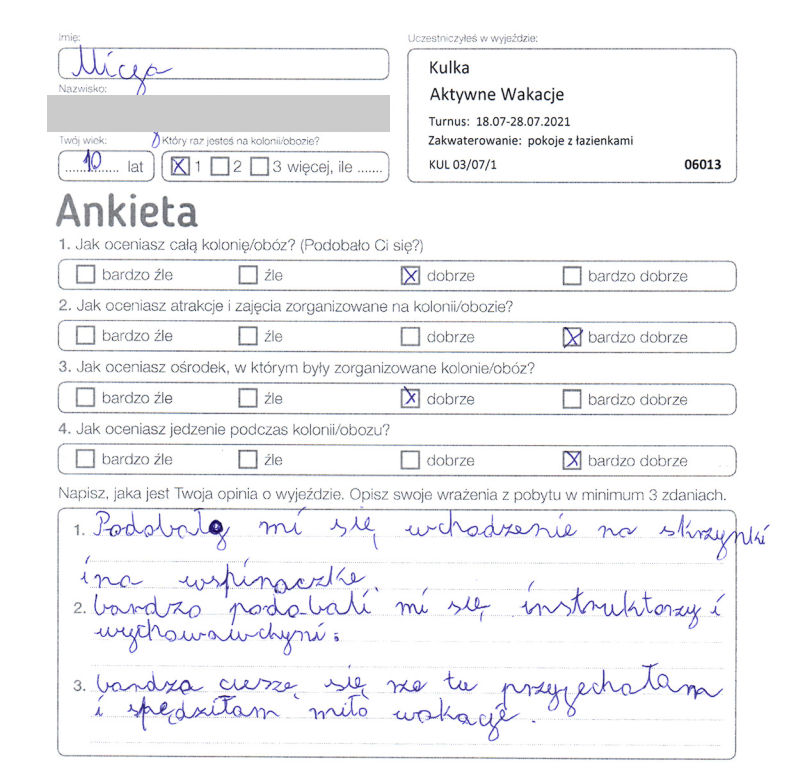 Imię:
Uczestniczyłeś w wyjeździe:
Micya
Kulka
Nazwisko:
Aktywne Wakacje
Turnus: 18.07-28.07.2021
Twój wiek:
Który raz jesteś na kolonii/obozie?
Zakwaterowanie: pokoje z łazienkami
10 lat
1 2 3 więcej, ile .......
KUL 03/07/1 06013
Ankieta
1. Jak oceniasz całą kolonię/obóz? (Podobało Ci się?)
bardzo źle źle dobrze bardzo dobrze
2. Jak oceniasz atrakcje i zajęcia zorganizowane na kolonii/obozie?
bardzo źle źle dobrze bardzo dobrze
3. Jak oceniasz ośrodek, w którym były zorganizowane kolonie/obóz?
bardzo źle źle dobrze bardzo dobrze
4. Jak oceniasz jedzenie podczas kolonii/obozu?
bardzo źle źle dobrze bardzo dobrze
Napisz, jaka jest Twoja opinia o wyjeździe. Opisz swoje wrażenia z pobytu w minimum 3 zdaniach.
1. Podobało mi się wchodzenie na skrzynki
i na wspinaczkę.
2. bardzo podobali mi się instruktorzy i
wychowawchyni.
3. bardza ciuszę się rze tu przyjechałam
i spędziłam miło wakacje.